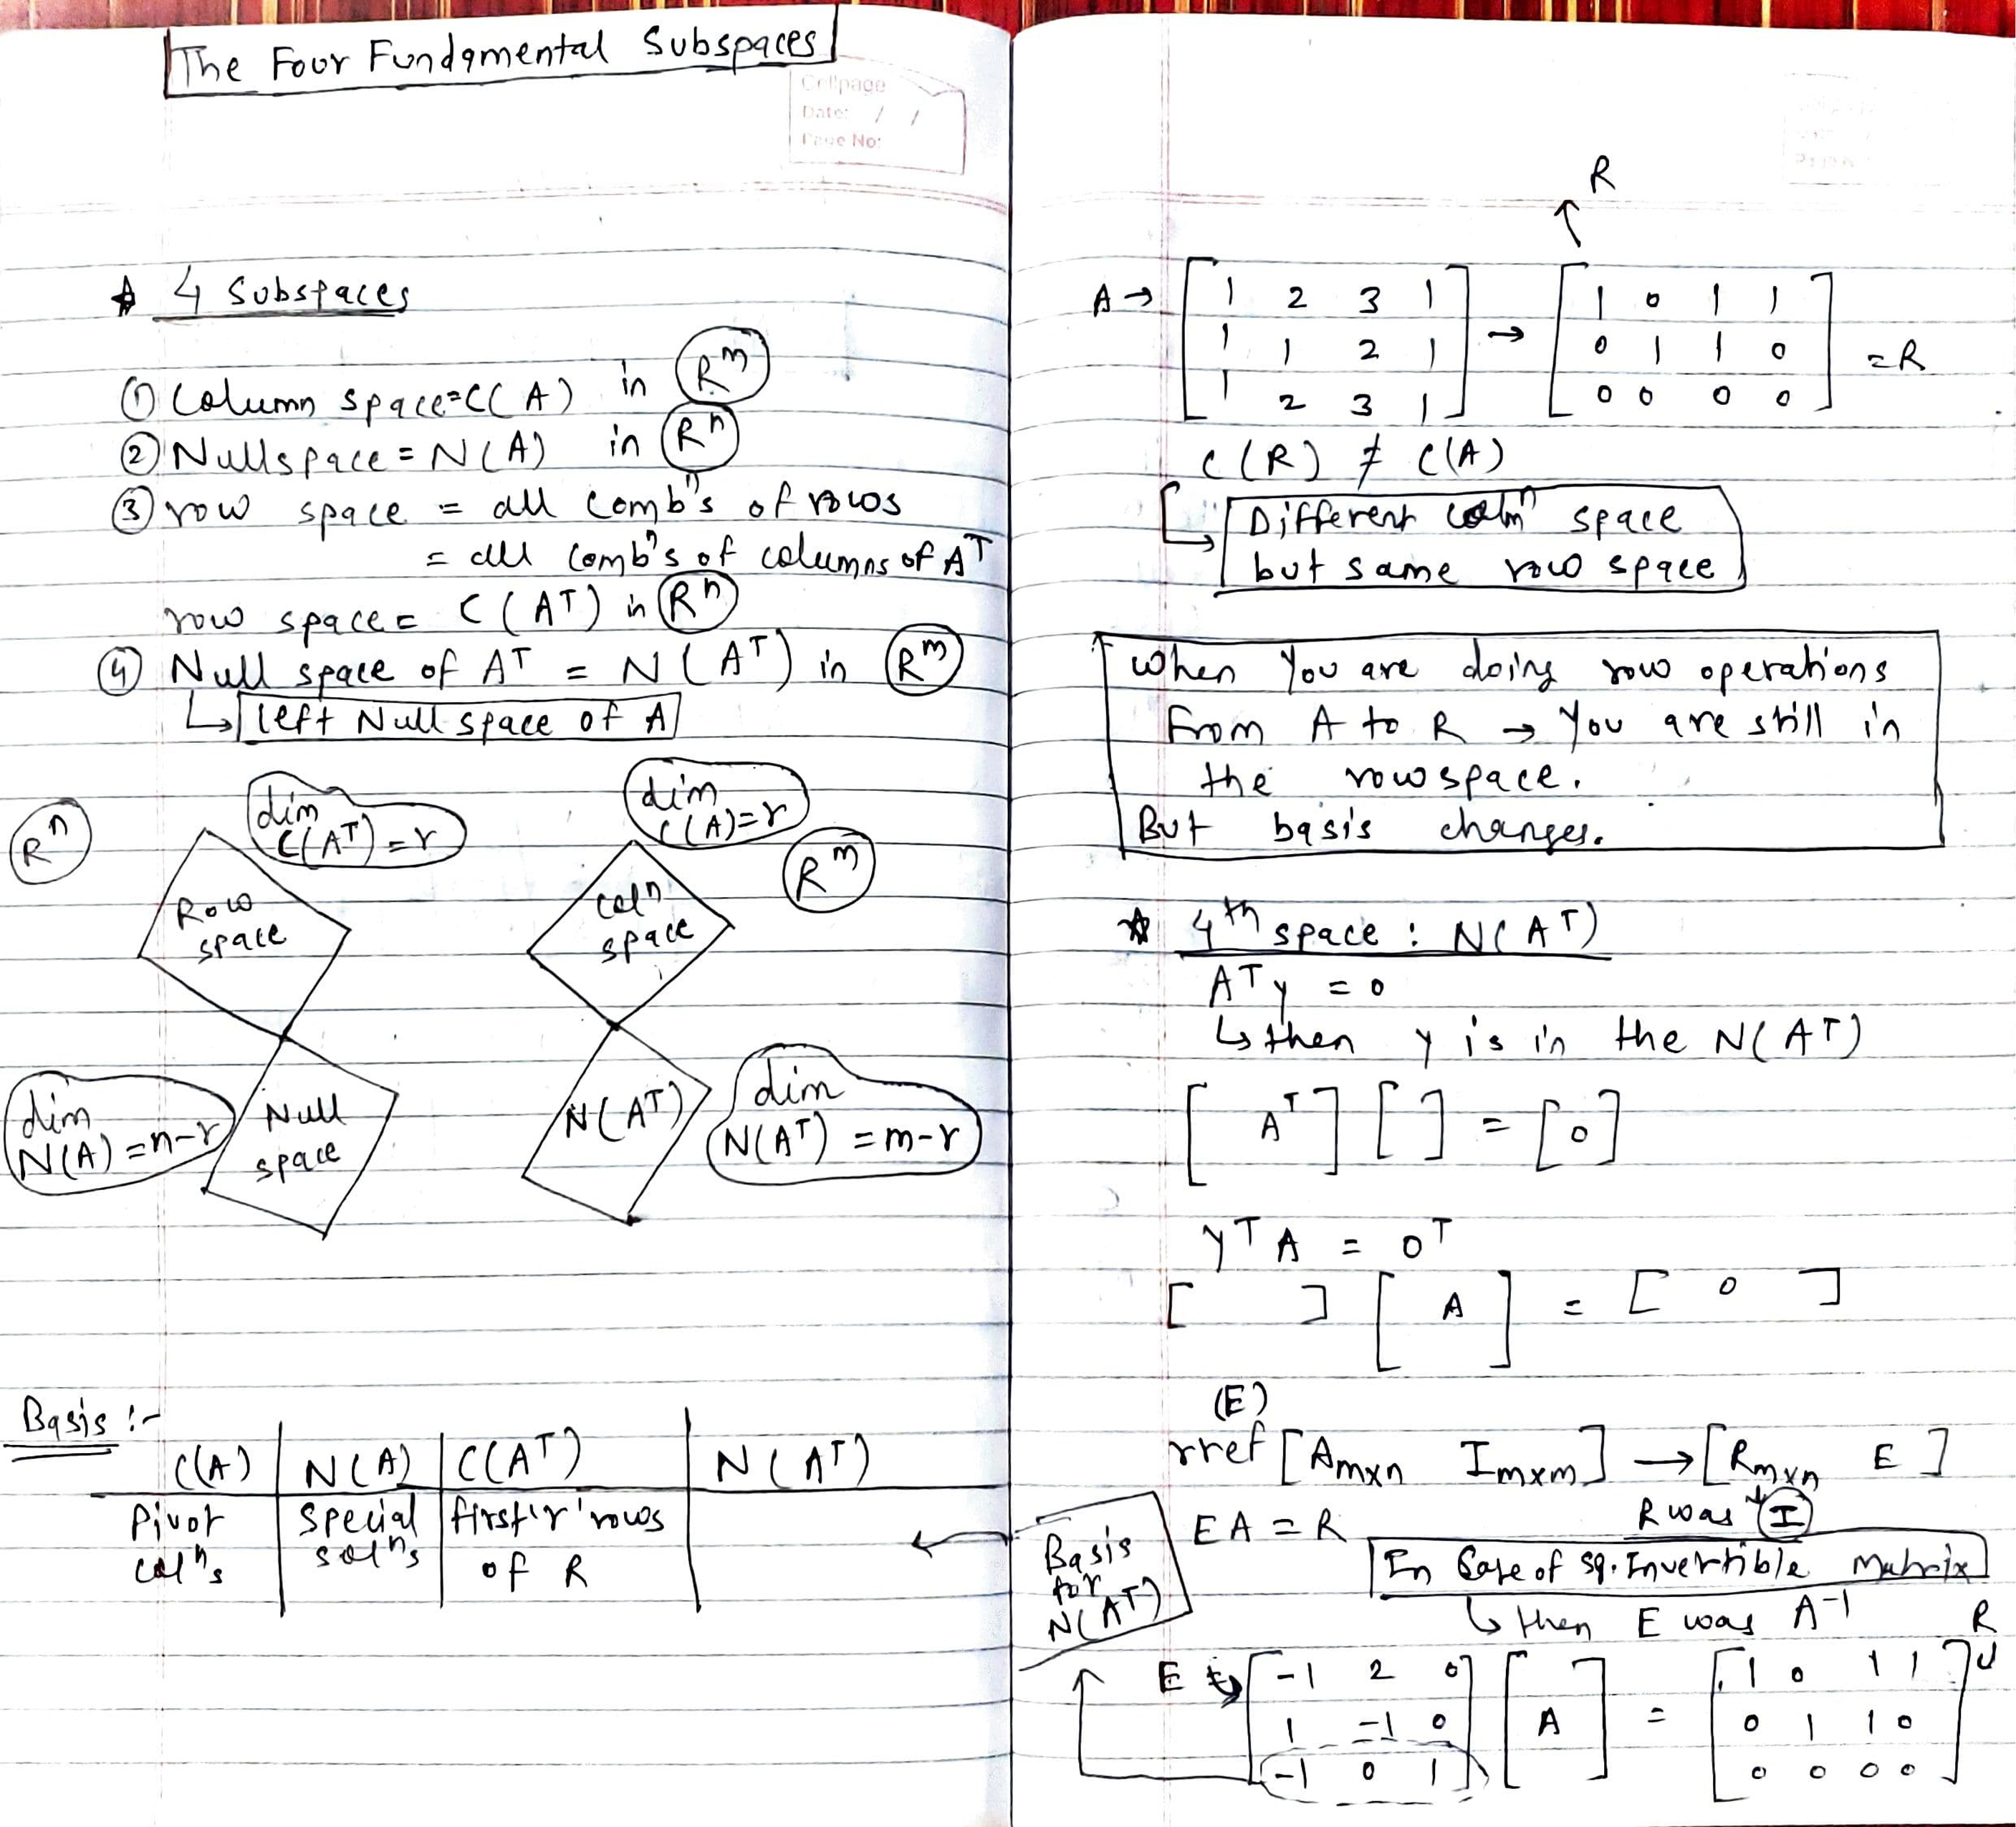 The Four Fundamental Subspaces
Cellpage
Date: / /
Page No:
4 Subspaces
① Column space = C(A) in R^m
② Nullspace = N(A) in R^n
③ row space = all comb^n's of rows
= all comb^n's of columns of A^T
row space = C(A^T) in R^n
④ Null space of A^T = N(A^T) in R^m
↳ left Null space of A
R^n
dim C(A^T) = r
Row space
dim N(A) = n-r
Null space
dim C(A) = r
R^m
col^n space
N(A^T)
dim N(A^T) = m-r
Basis :-
C(A) | N(A) | C(A^T) | N(A^T)
Pivot col^n's | special sol^ns | first 'r' rows of R |
R
↑
A → [1 2 3 1] → [1 0 1 1]
[1 1 2 1] [0 1 1 0] = R
[1 2 3 1] [0 0 0 0]
C(R) ≠ C(A)
↳ Different colm^n space
but same row space
When You are doing row operations
From A to R → You are still in
the rowspace.
But basis changes.
4th space : N(A^T)
A^T y = 0
↳ then y is in the N(A^T)
[A^T] [ ] = [0]
y^T A = 0^T
[ ] [A] = [ 0 ]
(E)
rref [A_mxn I_mxm] → [R_mxn E]
EA = R
R was I
In Case of sq. Invertible Matrix
↳ then E was A^-1
Basis for N(A^T)
R
E → [-1 2 0] [A] = [1 0 1 1]
[1 -1 0] [0 1 1 0]
[-1 0 1] [0 0 0 0]